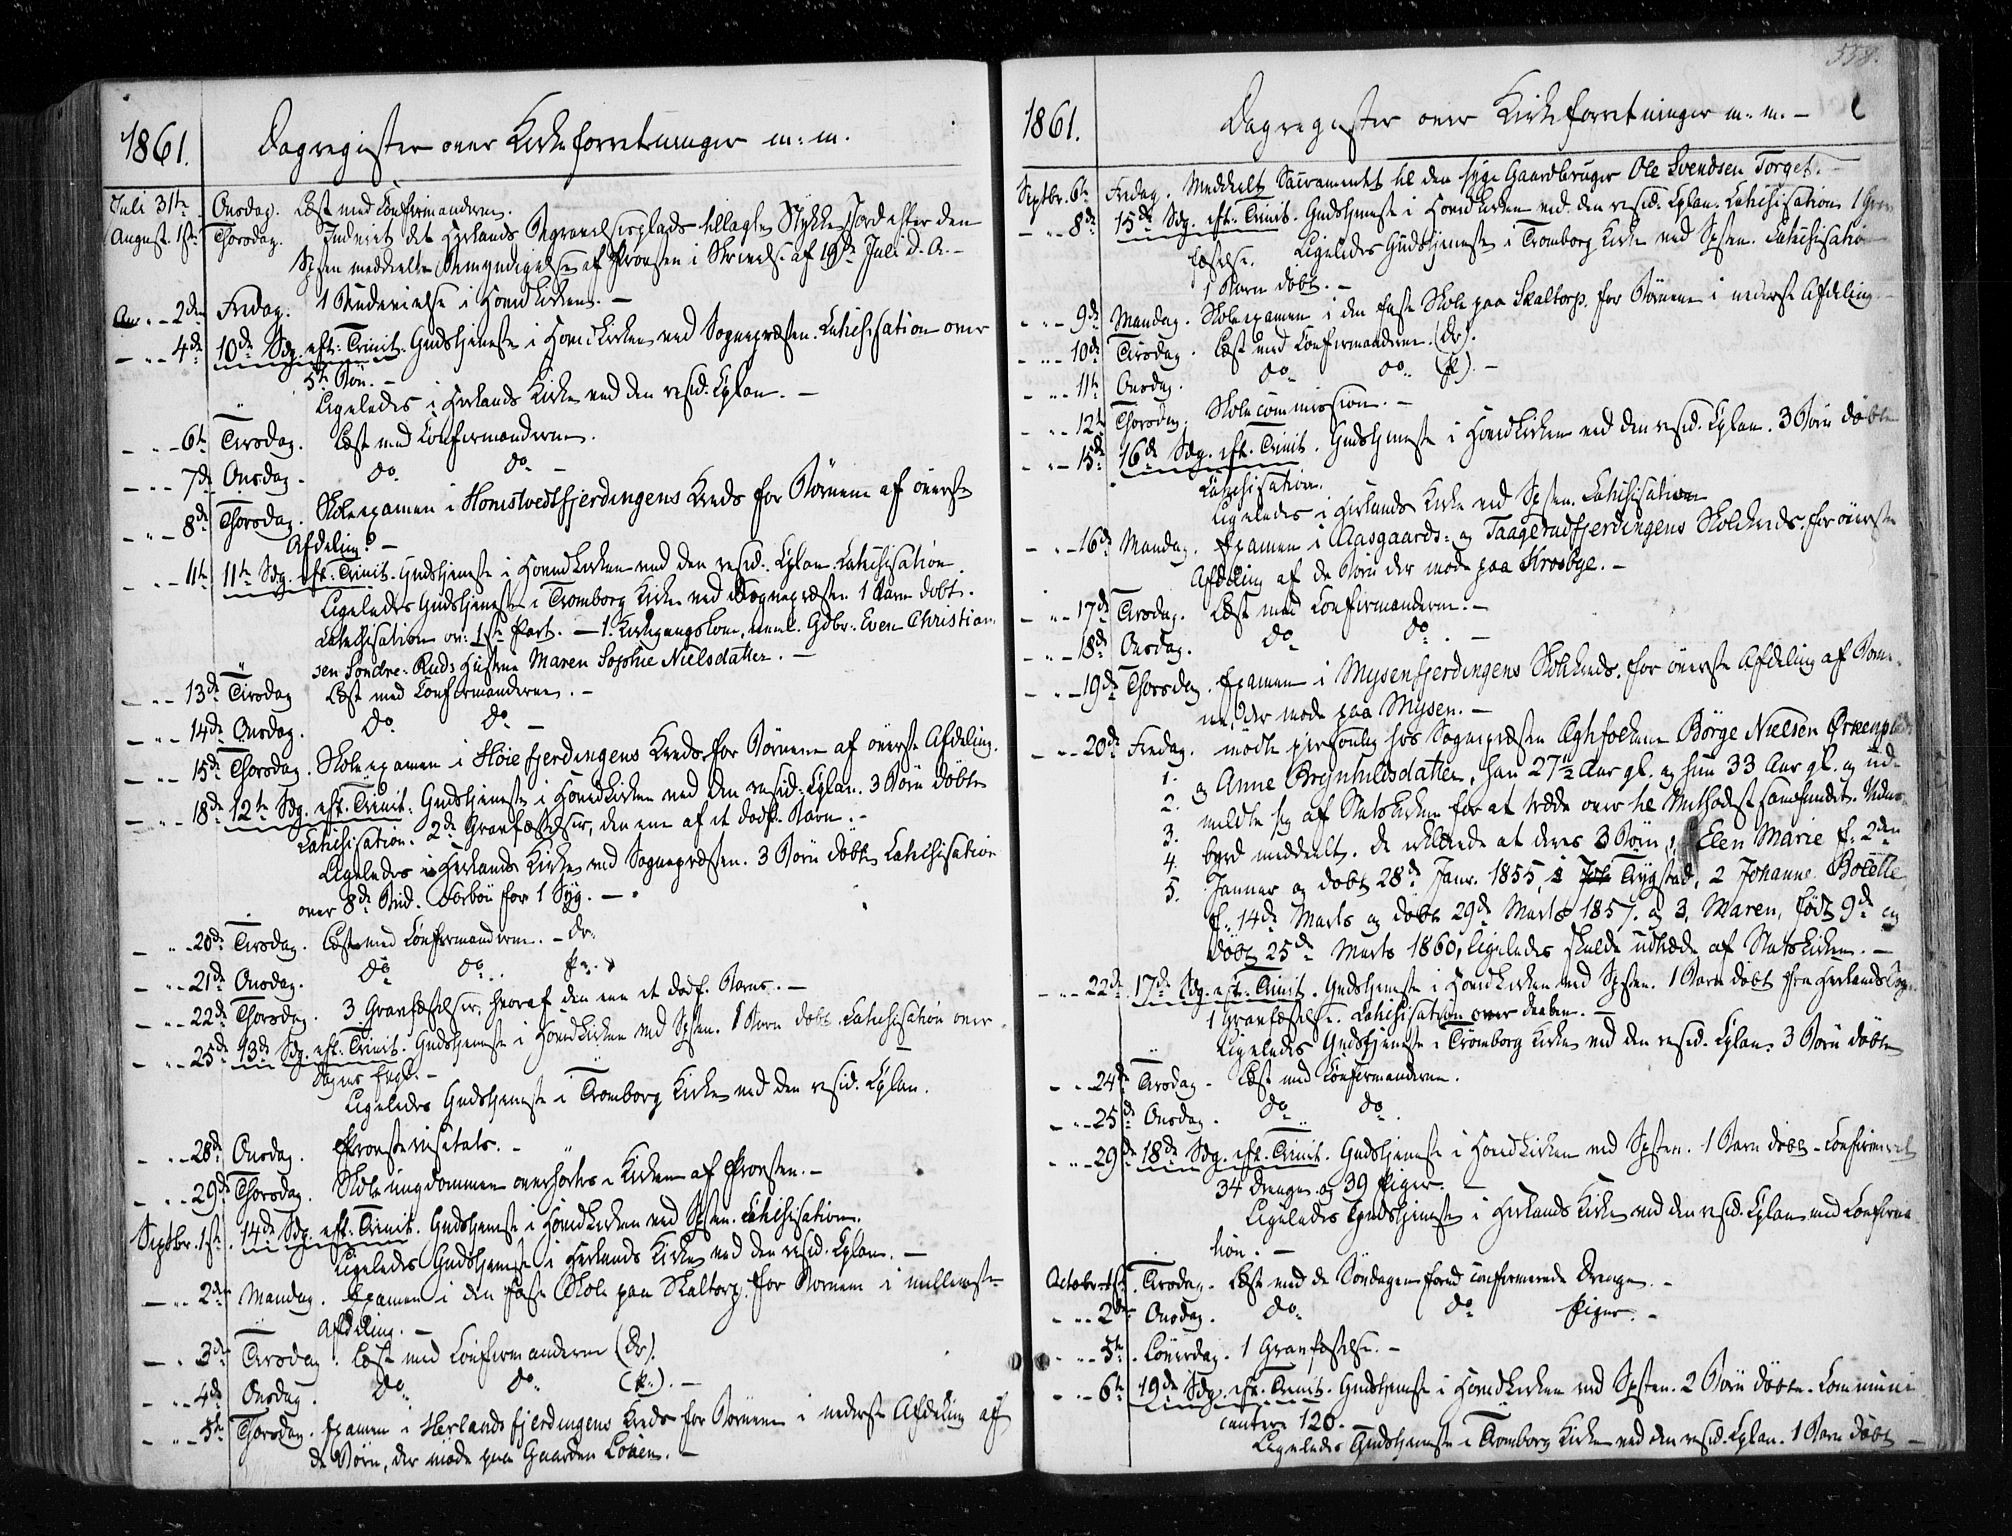 1861.
Dagregister over Kirkeforretninger m: m.
Juli 31te Onsdag. Læst med Confirmanderne.
August. 1ste Thorsdag. Indviet det Herlands Begravelsesplads tillagte Stykke Jord efter den
Spsten meddeelte Bemyndigelse af Provsten i Skrivelse af 19de Juli d. A. -
- „ - 2den Fredag. 1 Brudevielse i Hovedkirken. -
- „ - 4de 10de Sdg. eft: Trinit. Gudstjeneste i Hovedkirken ved Sognepræsten. Catechisation over
5te Bøn. -
Ligeledes i Herlands Kirke ved den resid. Cplan. -
- „ - 6te Tirsdag. Læst med Confirmanderne.
- „ - 7de Onsdag. do do -
- „ - 8de Thorsdag. Skoleexamen i Homstvedtfjerdingens Kreds for Børnene af øverste
Afdeling. -
- „ - 11te 11te Sdg. eft: Trinit. Gudstjeneste i Hovedkirken ved den resid: Cplan. Catechisation.
Ligeledes Gudstjeneste i Tromborg Kirke ved Sognepræsten. 1 Barn døbt.
Catechisation ov: 1ste Part. - 1. Kirkegangskone, neml. Gdbr: Even Christian-
sen Søndre-Ruds Hustrue Maren Sophie Nielsdatter. -
- „ - 13de Tirsdag Læst med Confirmanderne. -
- „ - 14de Onsdag. do do -
- „ - 15de Thorsdag. Skoleexamen i Høiefjerdingens Kreds for Børnene af øverste Afdeling.
- „ - 18de 12te Sdg. eft. Trinit. Gudstjeneste i Hovedkirken ved den resid: Cplan. 3 Børn døbte
Catechisation. 2de Gravfæstelser, den ene af et dødf. Barn. -
Ligeledes i Herlands Kirke ved Sognepræsten. 3 Børn døbte Catechisation
over 8de Bud. Forbøn for 1 Syg. -
- „ - 20de Tirsdag. Læst med Confirmanderne. - Dr.
- „ - 21de Onsdag. do do P.
- „ - 22de Thorsdag. 3 Gravfæstelser, hvoraf den ene et dødf. Barns. -
- „ - 25de 13de Sdg. eft: Trinit. Gudstjeneste i Hovedkirken ved Spsten. 1 Barn døbt. Catechisation over
Dagens Evgl. -
Ligeledes Gudstjeneste i Tromborg Kirke ved den resid. Cplan.
- „ - 28de Onsdag. Provstevisitats. -
- „ - 29de Thorsdag. Skoleungdommen overhørtes i Kirken af Provsten. -
Septbr. 1ste. 14de Sdg. eft: Trinit. Gudstjeneste i Hovedkirken ved Spsten. Catechisation.
Ligeledes Gudstjeneste i Herlands Kirke ved den resid. Cplan. -
- „ 2den Mandag. Examen i den faste Skole paa Skaltorp for Børnene i mellemste
Afdeling. -
- „ 3die Tirsdag. Læst med Confirmanderne (Dr).
- „ - 4de Onsdag. do do (P.). -
- „ - 5te Thorsdag. Examen i Herlandsfjerdingens Kreds for Børnene i nederste Afdeling af
de Børn, der møde paa Gaarden Løven. -
558.
1861.
Dagregister over Kirkeforretninger m. m. -
Septbr. 6te Fredag. Meddeelt Sacramentet til den syge Gaardbruger Ole Svendsen Torget. -
- „ - 8de 15de Sdg. eft: Trinit. Gudstjeneste i Hovedkirken ved den resid: Cplan. Catechisation. 1 Grav-
fæstelse. Ligeledes Gudstjeneste i Tromborg Kirke ved Spsten. Catechisation
1 Barn døbt. -
- „ - 9de Mandag. Skoleexamen i den faste Skole paa Skaltorp. for Børnene i nederste Afdeling. -
- „ - 10de Tirsdag. Læst med Confirmanderne. (Dr).
- „ - 11te Onsdag. do do (P). -
- „ - 12te Thorsdag. Skolecommission. -
- „ - 15de 16de Sdg. eft. Trinit. Gudstjeneste i Hovedkirken ved den resid. Cplan. 3 Børn døbte
Catechisation.
Ligeledes i Herlands Kirke ved Spsten. Catechisation
- „ - 16de Mandag. Examen i Aasgaards- og Taagerudfjerdingens Skolekreds, for øverste
Afdeling af de Børn der møde paa Krosbye. -
- „ - 17de Tirsdag. Læst med Confirmanderne. -
- „ - 18de Onsdag. do do. -
- „ - 19de Thorsdag. Examen i Mysenfjerdingens Skolekreds. for øverste Afdeling af Børne-
ne, der møde paa Mysen. -
- „ - 20de Fredag. mødte personlig hos Sognepræsten Ægtefolkene Børge Nielsen Ørkenplads
1. og Anne Brynhildsdatter, han 27½ Aar gl. og hun 33 Aar gl. og ud-
2. meldte sig af Statskirken for at træde over til Methodistsamfundet. Vidnes-
3. byrd meddeelt. De erklærede at deres 3 Børn, 1, Elen Marie f. 2den
4. Januar og døbt 28de Janr. 1855, i Trygstad, 2 Johanne Bolette
5. f. 14de Marts og døbt 29de Marts 1857. og 3, Maren, født 9de og
døbt 25de Marts 1860, ligeledes skulde udtræde af Statskirken. -
- „ - 22de 17de Sdg. eft. Trinit. Gudstjeneste i Hovedkirken ved Spsten. 1 Barn døbt fra Herlands Sogn.
1 Gravfæstelse. Catechisation over Daaben. -
Ligeledes Gudstjeneste i Tromborg Kirke ved den resid. Cplan. 3 Børn døbte
- „ - 24de Tirsdag - Læst med Confirmanderne.
- „ - 25de Onsdag. do do.
- „ - 29de 18de Sdg. eft. Trinit. Gudstjeneste i Hovedkirken ved Spsten. 1 Barn døbt - Confirmeret
34 Drenge og 39 Piger. -
Ligeledes Gudstjeneste i Herlands Kirke ved den resid. Cplan med Confirma-
tion. -
October 1ste. Tirsdag. Læst med de Søndagen forud confirmerede Drenge. -
- „ - 2den Onsdag. do do Piger. -
- „ - 5te. Løverdag. 1 Gravfæstelse. -
- „ - 6te 19de Sdg. eft. Trinit. Gudstjeneste i Hovedkirken ved Spsten. 2 Børn døbte. Communi-
cantere 120. -
Ligeledes Gudstjeneste i Tromborg Kirke ved den resid. Cplan. 1 Barn døbt -